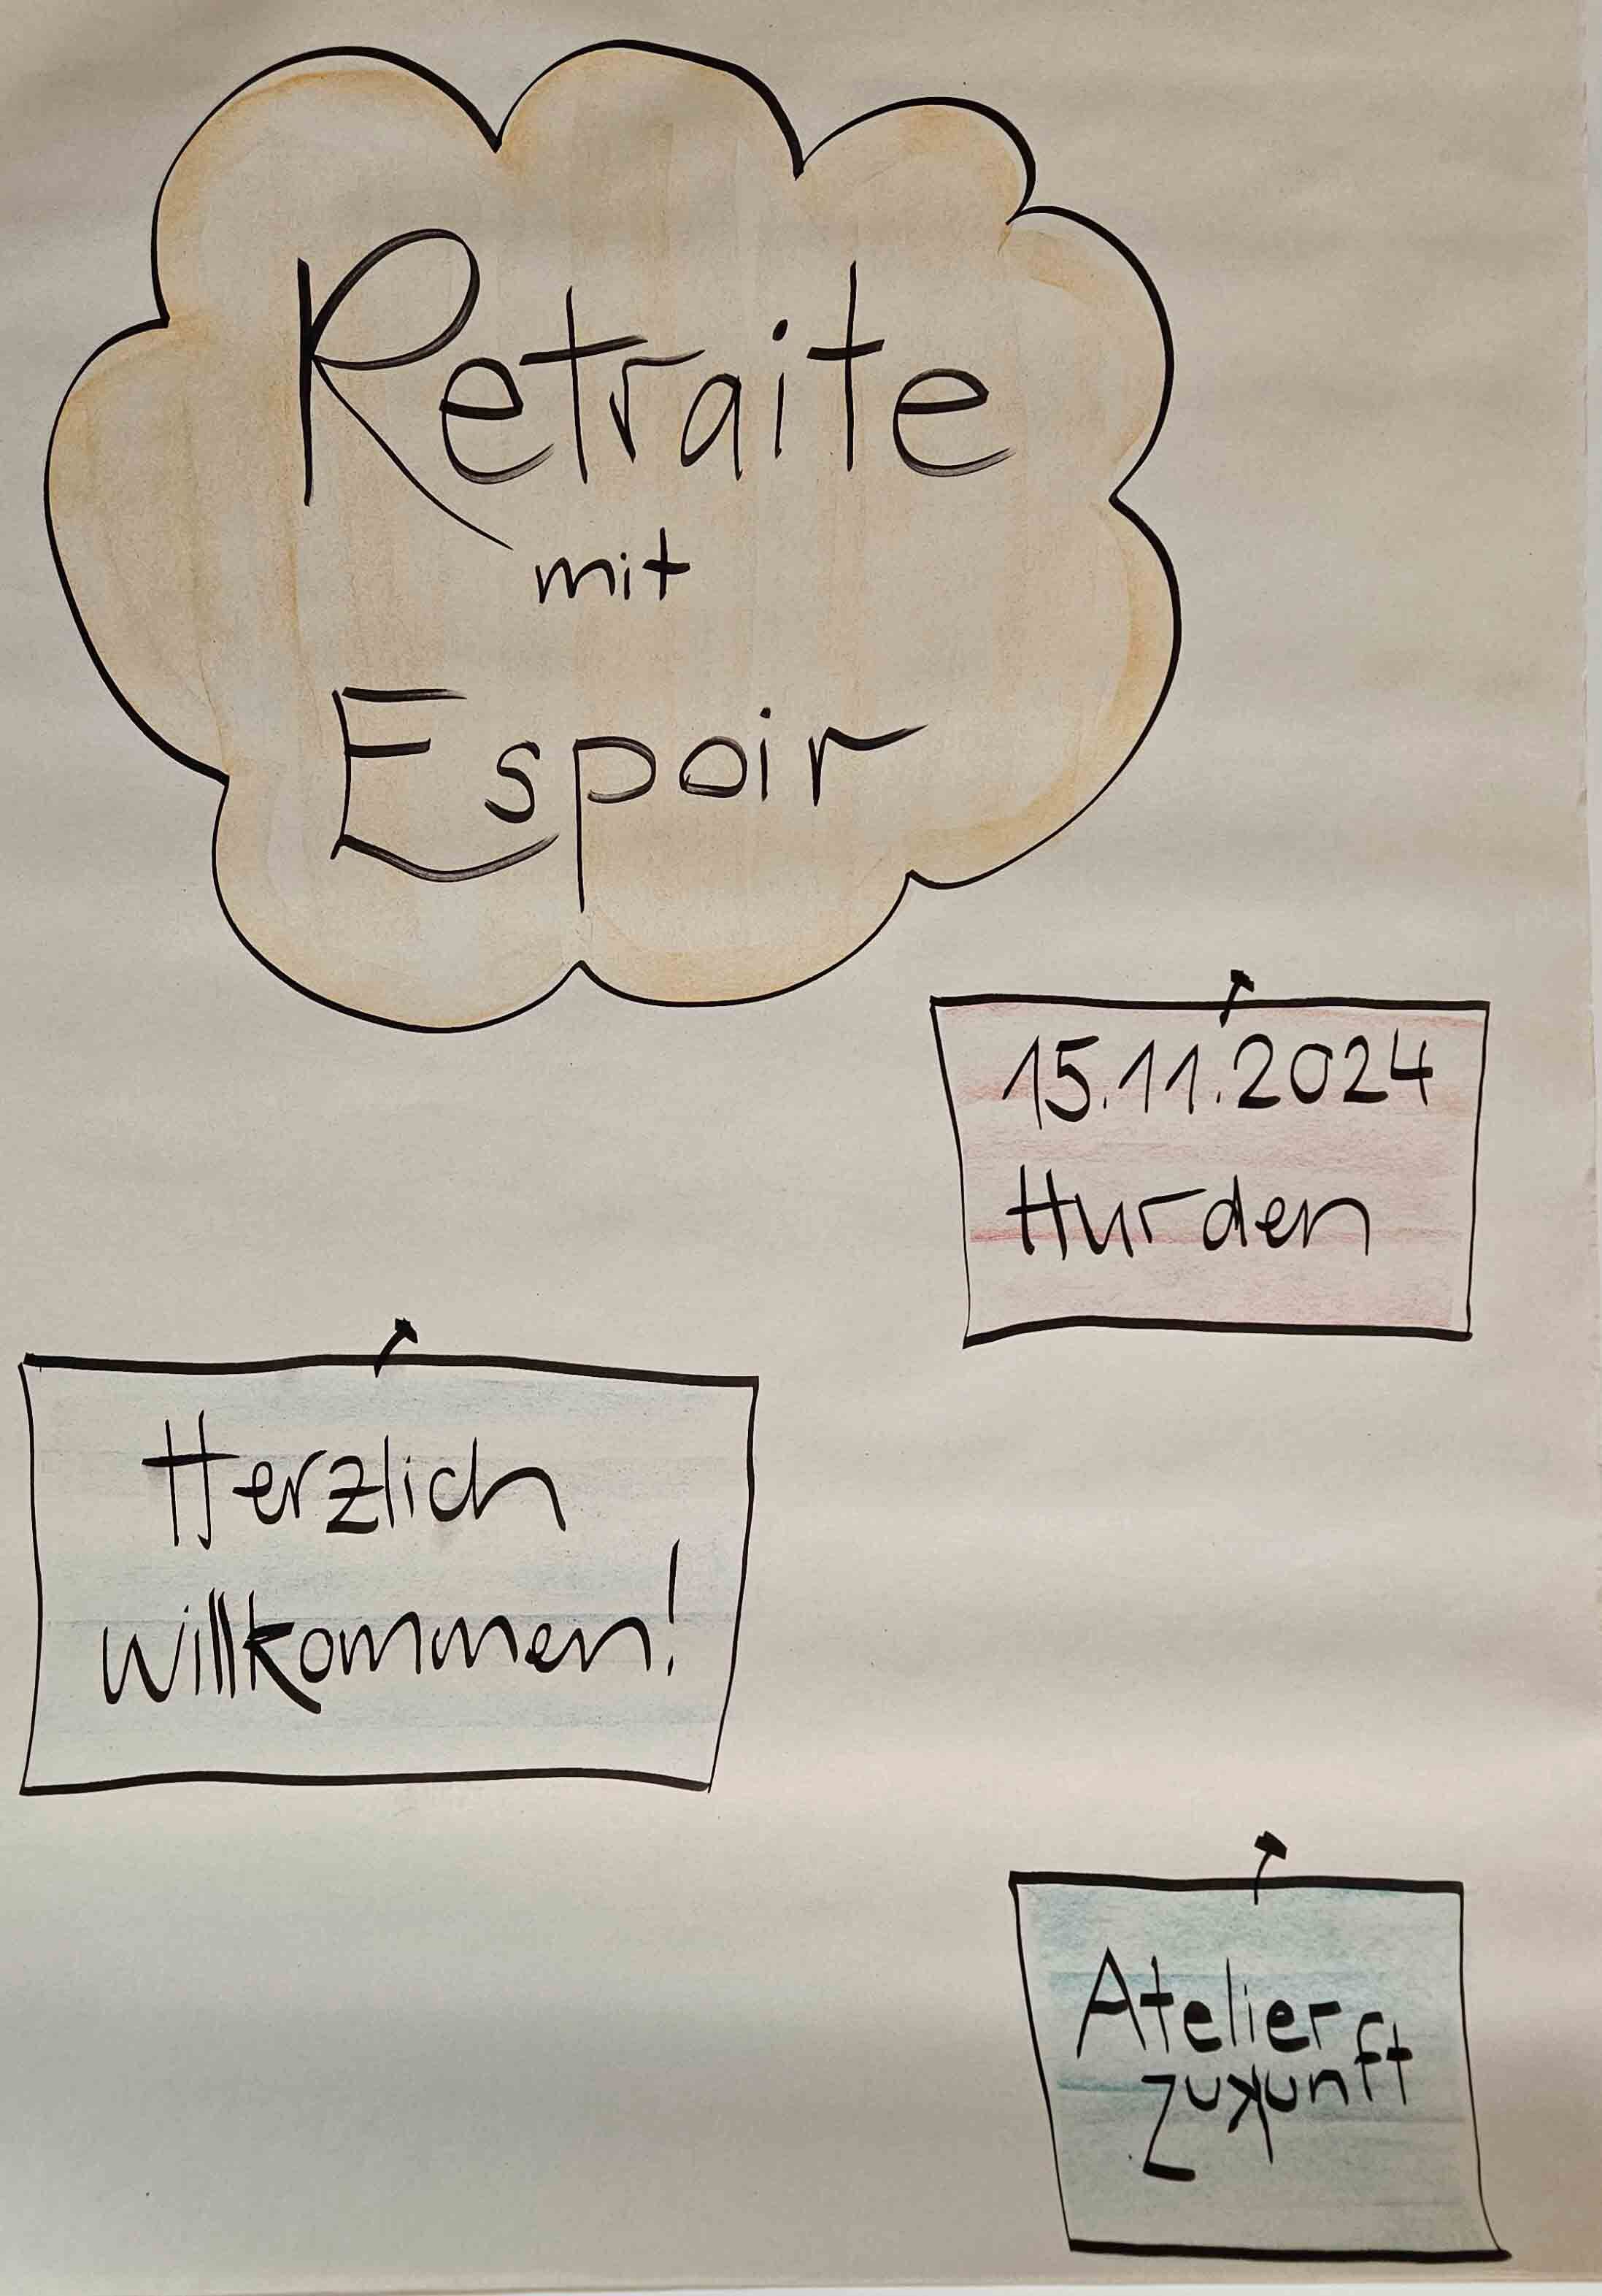 Retraite
mit
Espoir
15.11.2024
Hurden
Herzlich
willkommen!
Atelier
zukunft